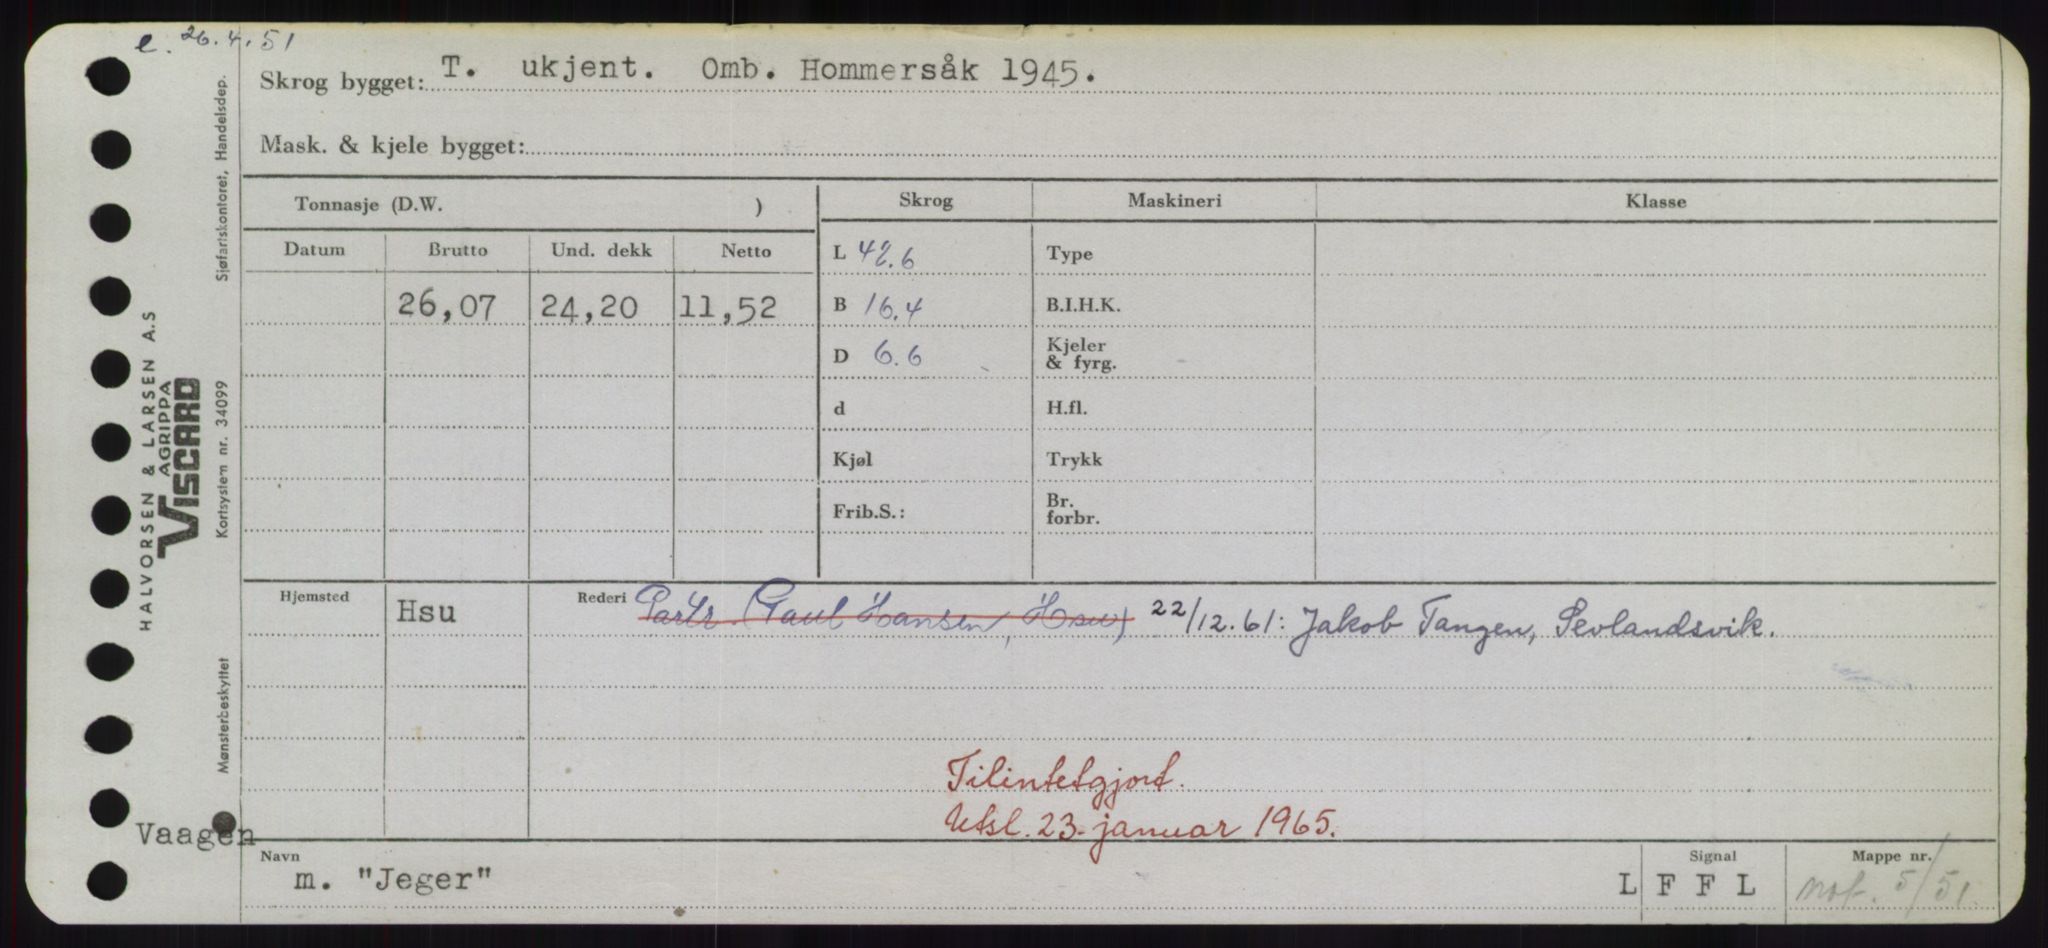 e. 26.4.51
Skrog bygget: T. ukjent. Omb. Hommersåk 1945.
Mask. & kjele bygget:
Tonnasje (D.W. )
Skrog
Maskineri
Klasse
Datum
Brutto
Und. dekk
Netto
26,07
24,20
11,52
L 42.6
B 16.4
D 6.6
d
Kjøl
Frib.S.:
Type
B.I.H.K.
Kjeler
& fyrg.
H.fl.
Trykk
Br.
forbr.
Hjemsted
Hsu
Rederi Partr. (Paul Hansen, Hsu) 22/12.61: Jakob Tangen, Sevlandsvik.
Tilintetgjort.
Utsl. 23. januar 1965.
Vaagen
Navn
m. "Jeger"
Signal
L F F L
Mappe nr.
not. 5/51.
HALVORSEN & LARSEN A.S
AGRIPPA
VISCARD
Sjøfartskontoret, Handelsdep.
Kortsystem nr. 34099
Mønsterbeskyttet